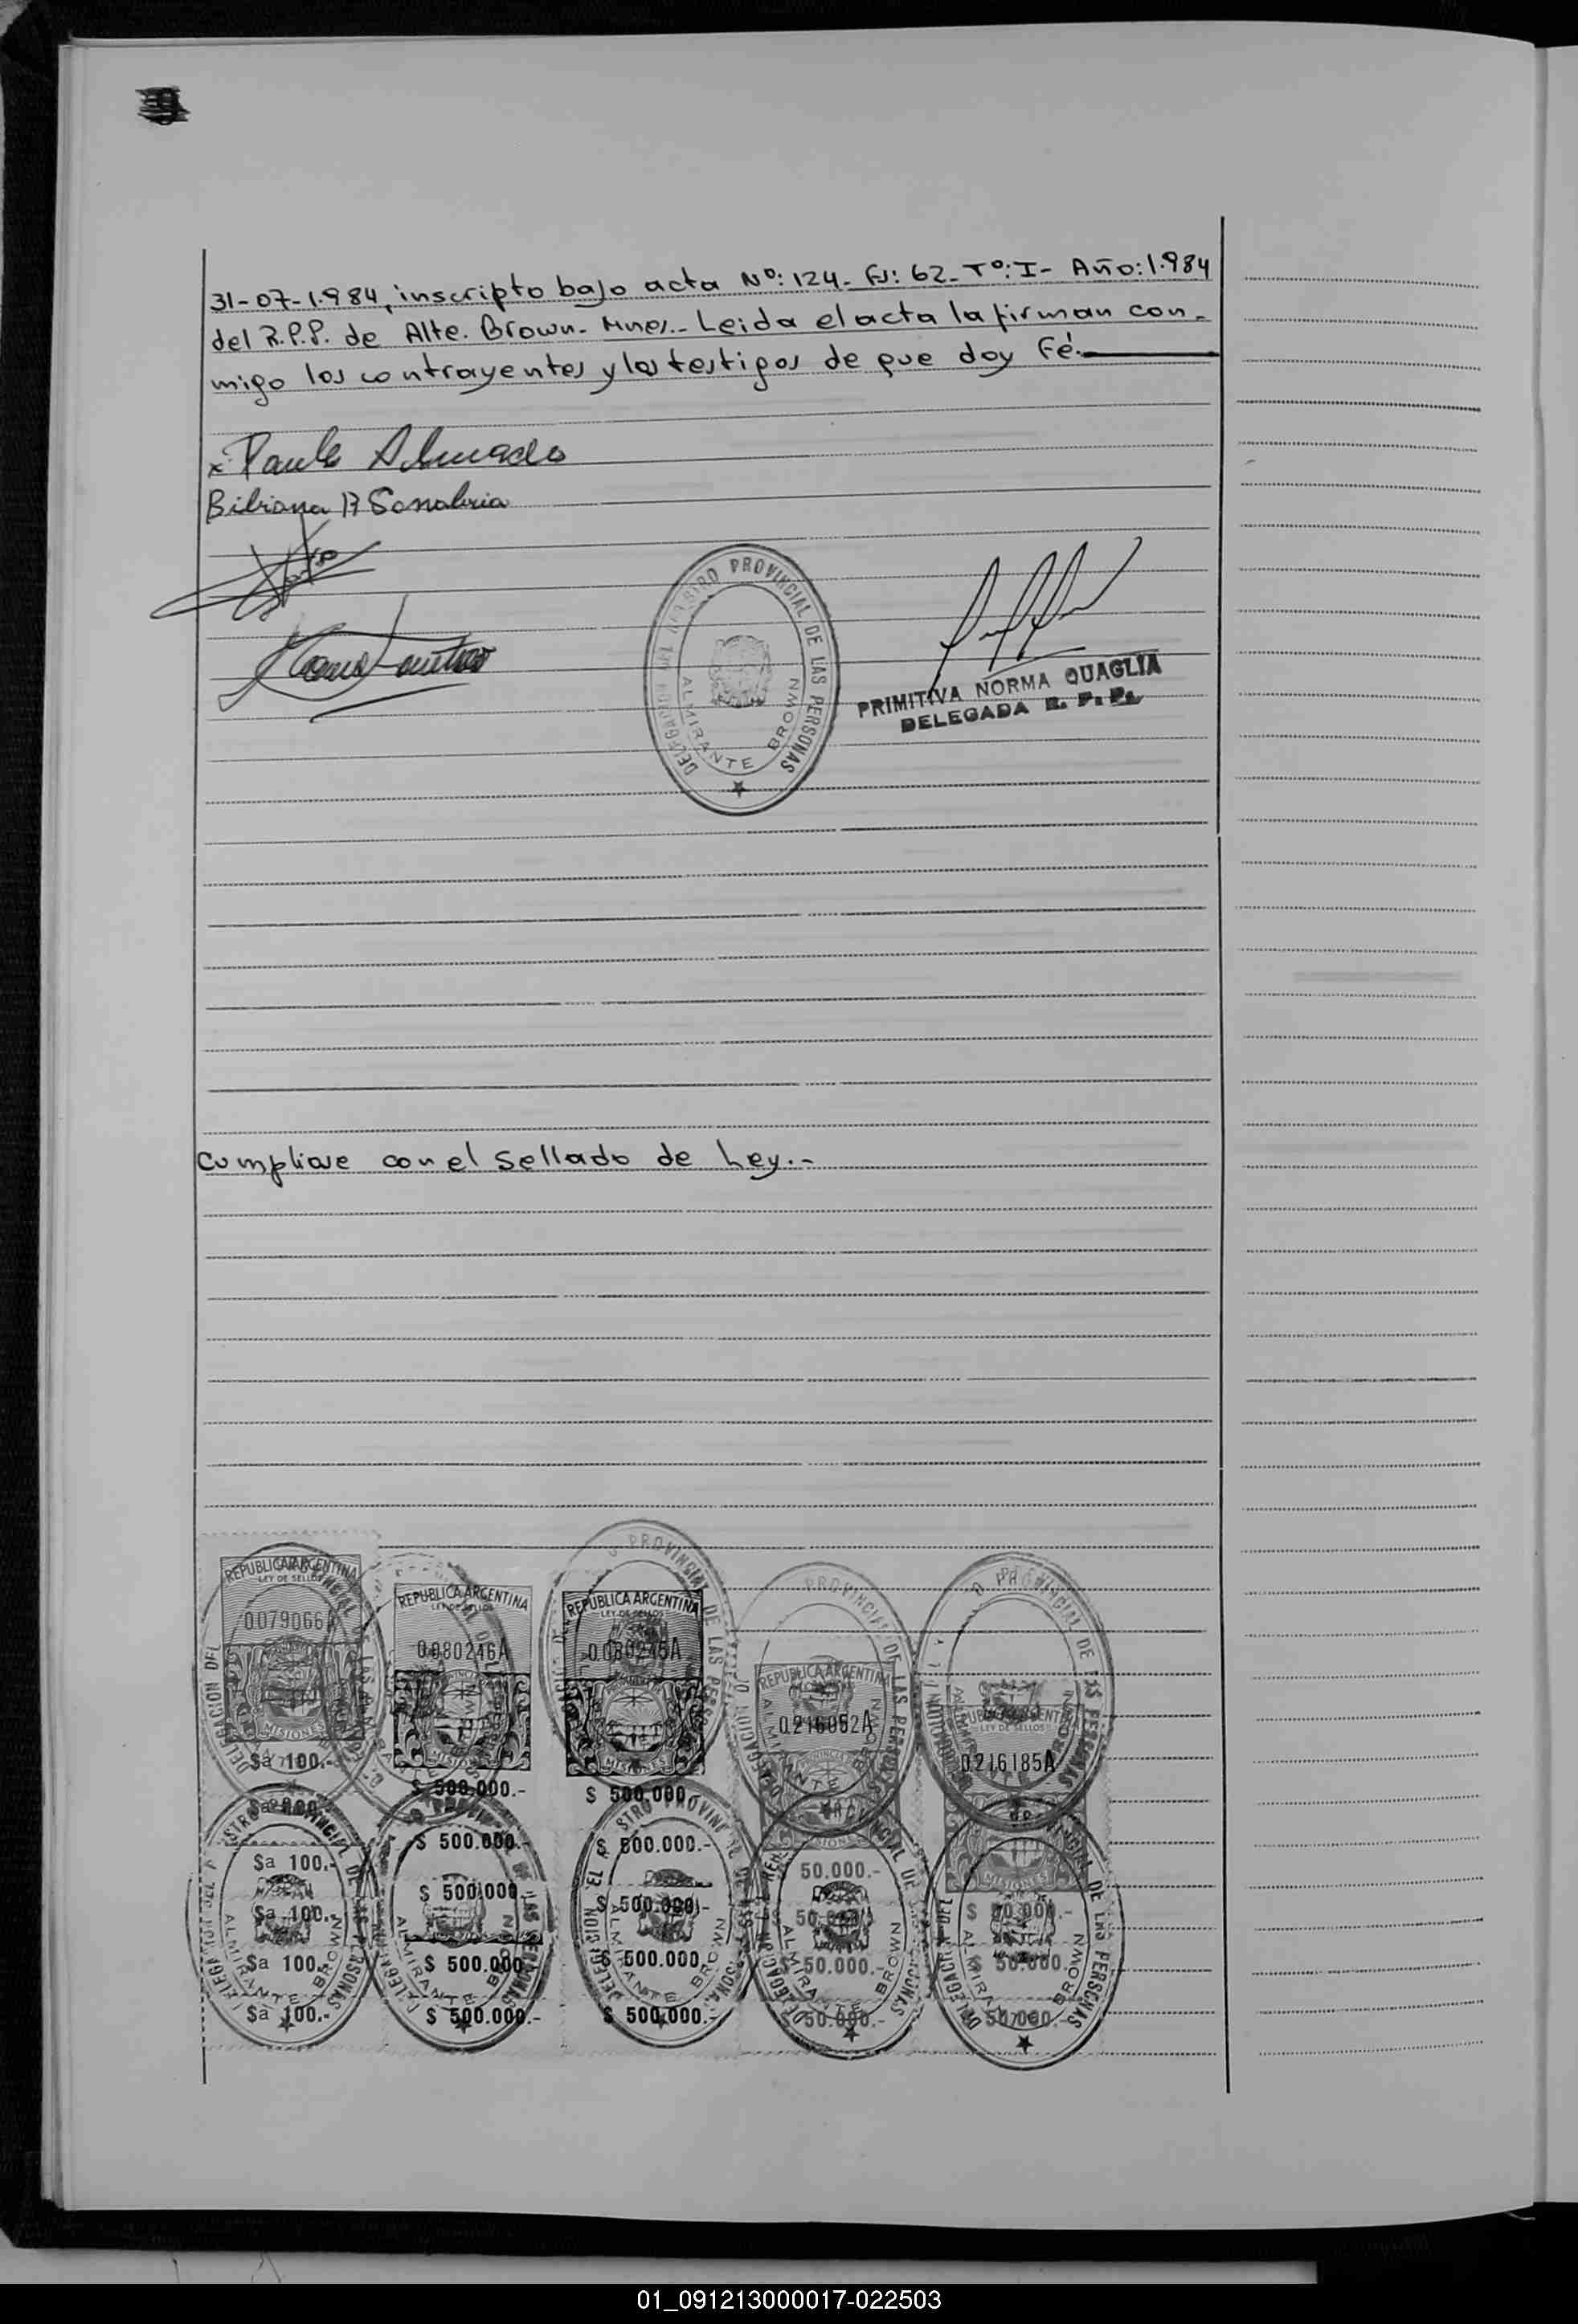 31-07-1.984, inscripto bajo acta Nº: 124- FJ: 62- Tº: I- Año: 1.984
del R.P.P. de Alte. Brown- Mnes.- Leida el acta la firman con-
migo los contrayentes y los testigos de que doy Fé.-
x Paula Almada
Bibiana R Sanabria
DELEGACION DEL REGISTRO PROVINCIAL DE LAS PERSONAS
ALMIRANTE BROWN
PRIMITIVA NORMA QUAGLIA
DELEGADA R. P. P.
Cumpliose con el sellado de Ley.-
REPUBLICA ARGENTINA
LEY DE SELLOS
0079066A
MISIONES
$a 100.-
$a 100.-
$a 100.-
$a 100.-
$a 100.-
REPUBLICA ARGENTINA
LEY DE SELLOS
0080246A
MISIONES
$ 500.000.-
$ 500.000.-
$ 500.000.-
$ 500.000.-
$ 500.000.-
REPUBLICA ARGENTINA
LEY DE SELLOS
0080245A
MISIONES
$ 500.000.-
$ 500.000.-
$ 500.000.-
$ 500.000.-
$ 500.000.-
REPUBLICA ARGENTINA
MISIONES
50.000.-
50.000.-
50.000.-
50.000.-
LEY DE SELLOS
0216185A
MISIONES
$ 50.000.-
$ 50.000.
50.000.-
01_091213000017-022503